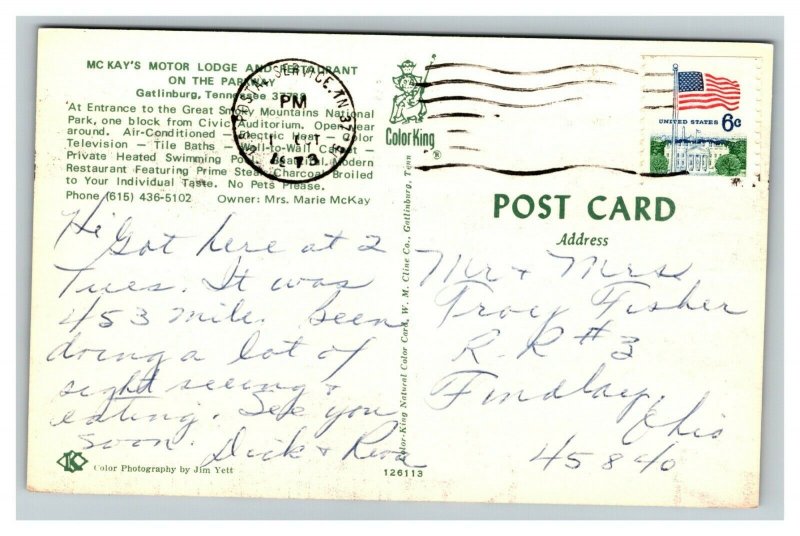 MC KAY'S MOTOR LODGE AND RESTAURANT
ON THE PARKWAY
Gatlinburg, Tennessee 37738
At Entrance to the Great Smoky Mountains National
Park, one block from Civic Auditorium. Open year
around. Air-Conditioned — Electric Heat — Color
Television — Tile Baths — Wall-to-Wall Carpet —
Private Heated Swimming Pool. Beautiful Modern
Restaurant Featuring Prime Steak Charcoal Broiled
to Your Individual Taste. No Pets Please.
Phone (615) 436-5102 Owner: Mrs. Marie McKay
POSTAL SERVICE, TN
PM
73
Color King
®
UNITED STATES 6c
POST CARD
Address
Hi
Got here at 2
Tues. It was
453 mile. Been
doing a lot of
sight seeing &
eating. See you
soon. Dick &
Mr & Mrs
Troy Fisher
R.R #3
Findlay,
Ohio
45840
Color-King Natural Color Card, W. M. Cline Co., Gatlinburg, Tenn
K
Color Photography by Jim Yett
126113